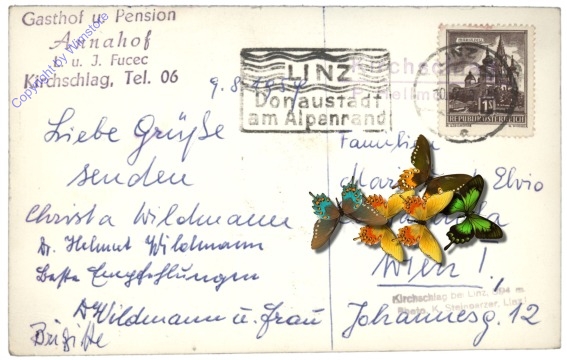 Gasthof u. Pension
Annahof
u. J. Fucec
Kirchschlag, Tel. 06
Copyright by Winstore
9.8.1959
LINZ
Donaustadt
am Alpenrand
LINZ
REPUBLIK ÖSTERREICH
Liebe Grüße
senden
Christa Wildmann
Dr. Helmut Wildmann
Beste Empfehlungen
Wildmann u. Frau
Brigitte
Familien
Elvio
Wien I.
Johannesg. 12
Kirchschlag bei Linz, 894 m.
Linz